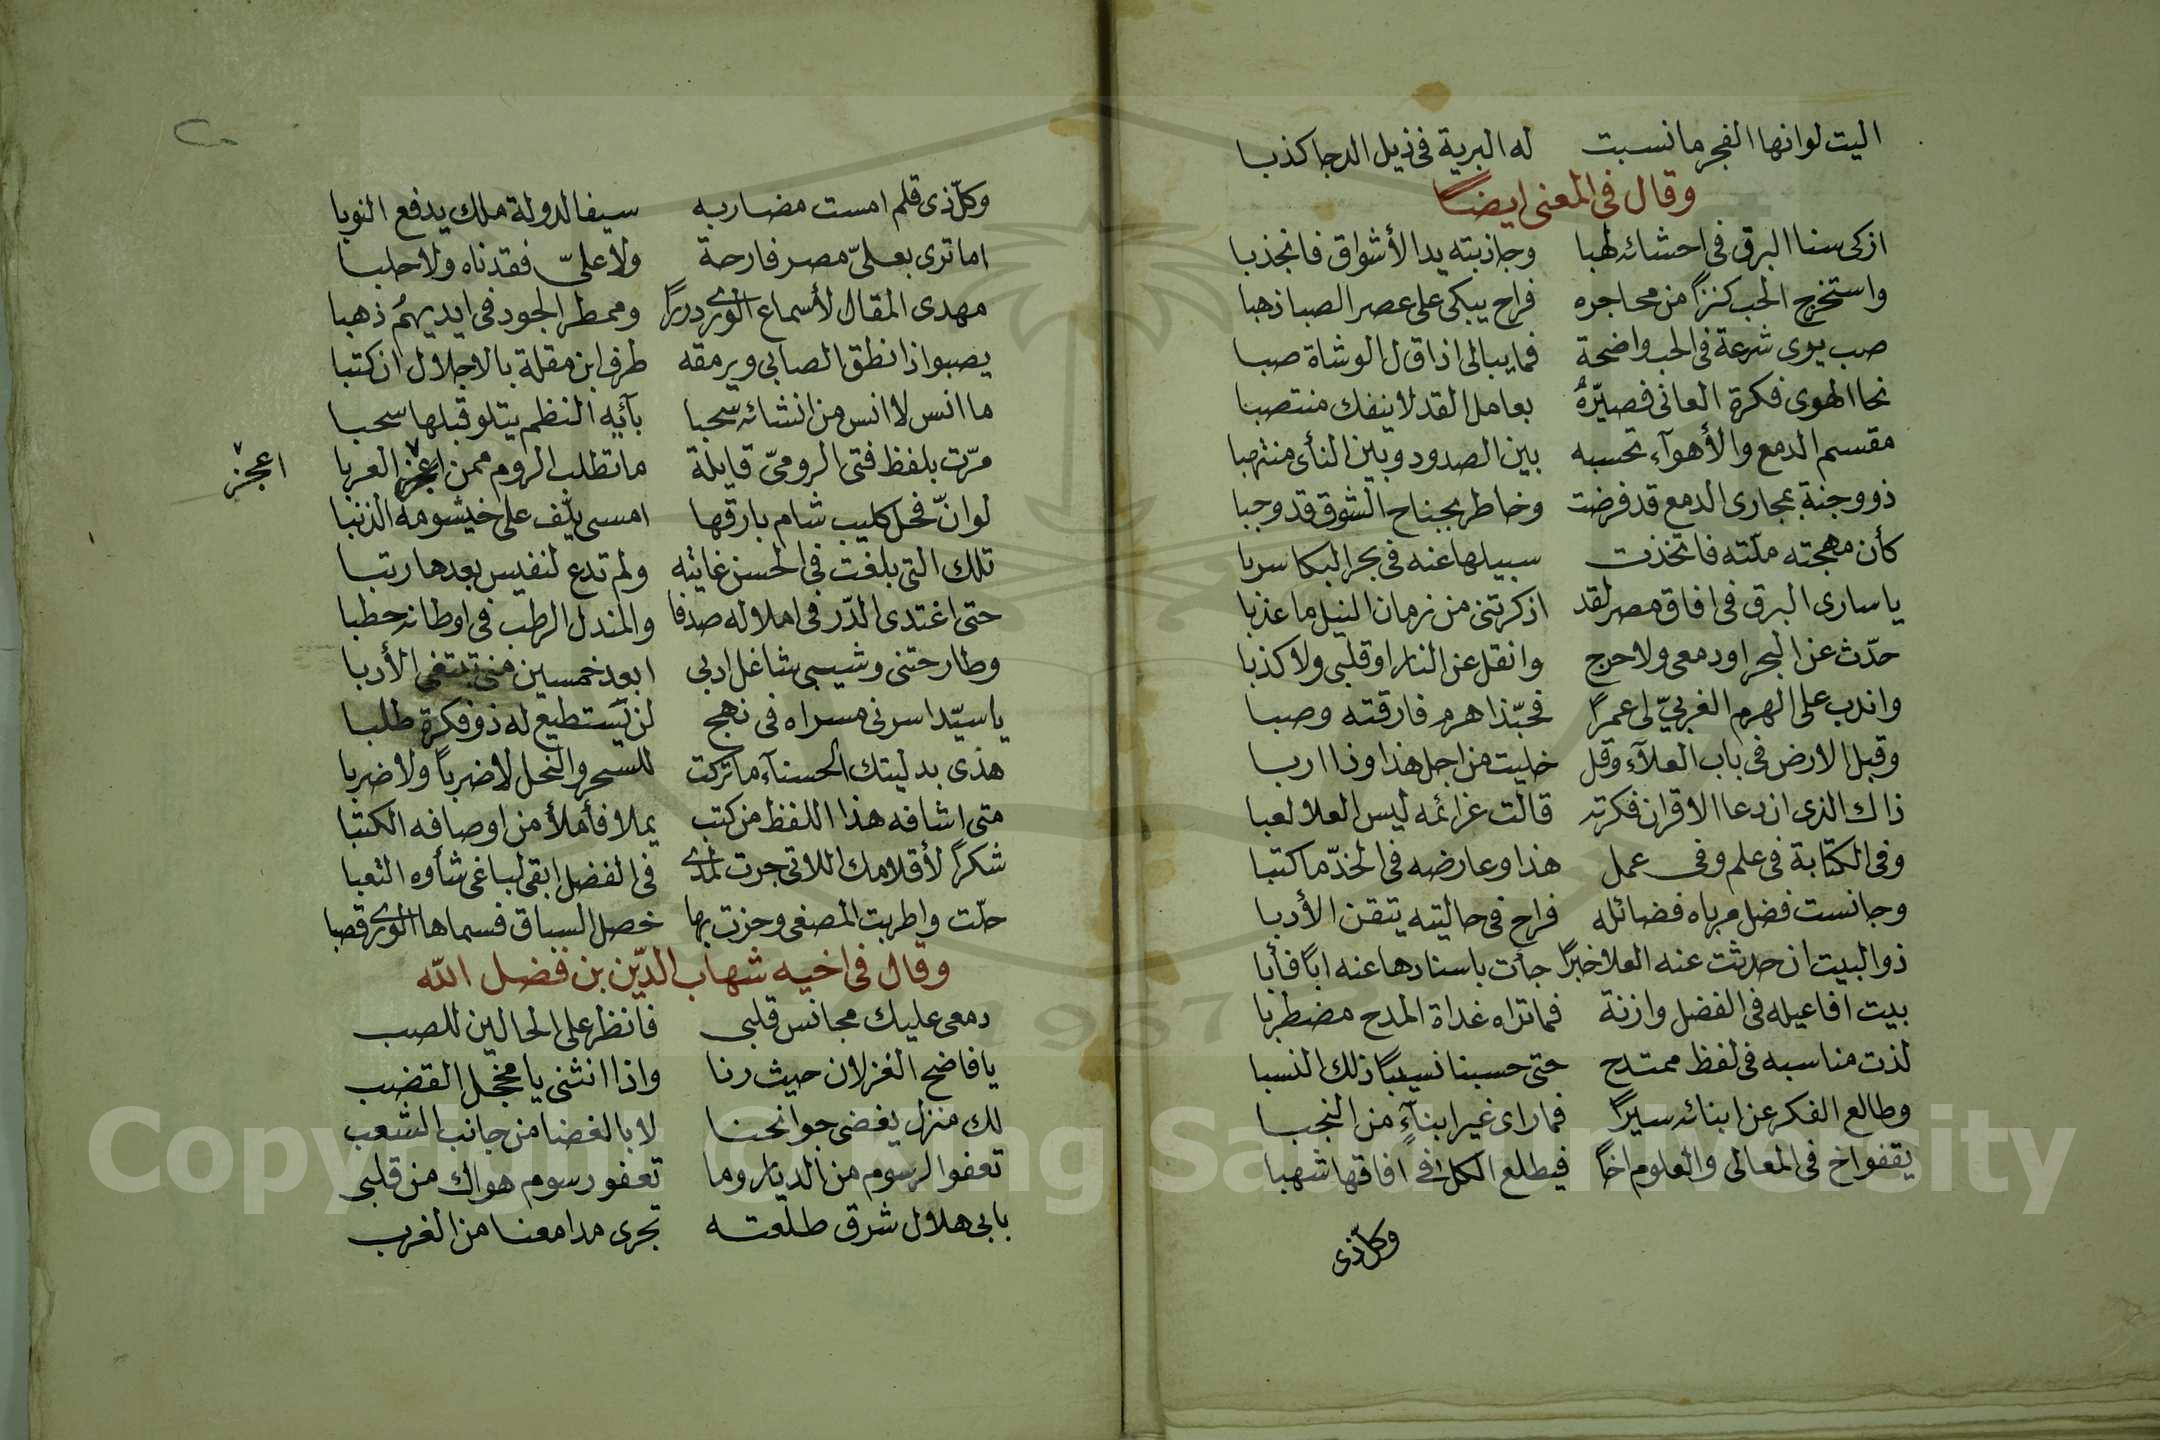 اليت لوانها الفجر مانسبت له البرية فى ذيل الدجا كذبا
وقال فى المعنى ايضاً
ازكى سنا البرق فى احشائه لهبا وجاذبته يد الأشواق فانجذبا
واستخرج الحب كنزاً من محاجره فراح يبكى على عصر الصبا ذهبا
صب يوى شرعة فى الحب واضحة فما يبالى اذا قال الوشاة صبا
نحا الهوى فكرة العانى فصيّرهُ بعامل القد لا ينفك منتصبا
مقسم الدمع والأهوآء تحسبه بين الصدود وبين النأى منتهبا
ذو وجنة بمجارى الدمع قد فرضت وخاطر بجناح الشوق قد وجبا
كأن مهجته ملّته فاتخذت سبيلها عنه فى بحر البكا سربا
يا سارى البرق فى افاق مصر لقد اذكرتنى من زمان النيل ما عذبا
حدّث عن البحر او دمعى ولا حرج وانقل عن النار او قلبى ولا كذبا
واندب على الهرم الغربىّ لى عمراً فحبّذا هرم فارقته وصبا
وقبل الارض فى باب العلآء وقل خليت من اجل هذا وذا اربا
ذاك الذى ان دعا الاقران فكرته قالت عزائمه ليس العلا لعبا
وفى الكتابة فى علم وفى عمل هذا وعارضه فى الخدّ ما كتبا
وجانست فضل مرباه فضائله فراح فى حاليته يتقن الأدبا
ذو البيت ان حدثت عنه العلا خبراً جأت باسنادها عنه اباً فأبا
بيت افاعيله فى الفضل وازنة فما تراه غداة المدح مضطربا
لذت مناسبه فى لفظ ممتدح حتى حسبنا نسيباً ذلك النسبا
وطالع الفكر عن ابنائه سيراً فما راى غير ابنآءٍ من النجبا
يقفو اخ فى المعالى والعلوم اخاً فيطلع الكل فى افاقها شهبا
وكلّ ذى
وكلّ ذى قلم امست مضاربه سيفا لدولة ملك يدفع النوبا
اما ترى بعلىّ مصر فارحة ولا علىّ فقدناه ولا حلبا
مهدى المقال لأسماع الورى درراً وممطر الجود فى ايديهمُ ذهبا
يصبو اذا نطق الصابى ويرمقه طرف ابن مقلة بالاجلال ان كتبا
ما انس لا انس من انشائه سحبا بآيه النظم يتلو قبلها سحبا
مرّت بلفظ فتى الرومىّ قايلة ما تطلب الروم ممن اعجز العربا
اعجز
لو انّ فحل كليب شام بارقها امسى يلّف على خيشومه الذنبا
تلك التى بلغت فى الحسن غايته ولم تدع لنفيس بعدها رتبا
حتى اغتدى الدّر فى املا له صدفا والمندل الرطب فى اوطانه حطبا
وطارحتنى وشيبى شاغل ادبى ابعد خمسين منى تبتغى الأدبا
يا سيّدا سرنى مسراه فى نهج لن يستطيع له ذو فكرة طلبا
هذى بديتك الحسنآء ما تركت للسحر والنحل لا ضرباً ولا ضربا
متى اشافه هذا اللفظ من كتب يملا فأملأ من اوصافه الكتبا
شكراً لأقلامك اللاتى جرت لمدى فى الفضل ابقى لباغى شأوه التعبا
حلّت واطربت المصغى وحزت بها خصل السباق فسماها الورى قصبا
وقال فى اخيه شهاب الدّين بن فضل الله
دمعى عليك مجانس قلبى فانظر على الحالين للصب
يا فاضح الغزلان حيث رنا واذا انثنى يا مخجل القضب
لك منزل يغضى جوانحنا لا بالغضا من جانب الشعب
تعفو الرسوم من الديار وما تعفو رسوم هواك من قلبى
بابى هلال شرق طلعته تجرى مدامعنا من الغرب
Copyright © King Saud University
1957